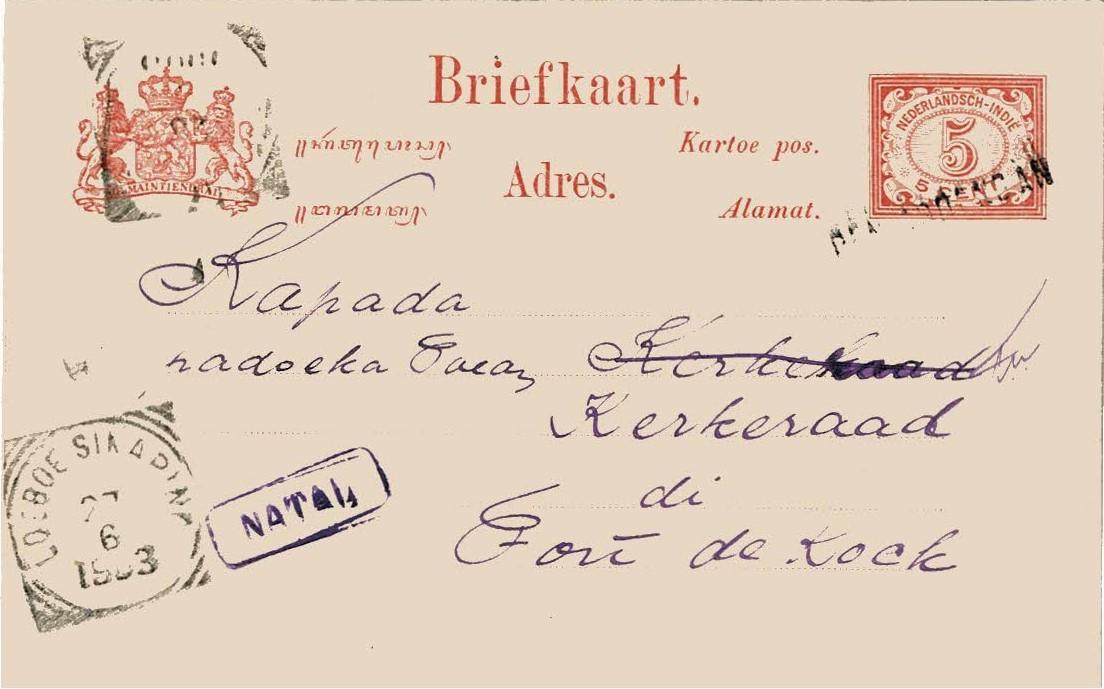 Briefkaart.
Kartoe pos.
Adres.
Alamat.
NEDERLANDSCH-INDIË
5
5 CENT
Kapada
padoeka Toean Kerkeraad
Kerkeraad
di
Fort de Kock
LOEBOE SIKAPING
27
6
1903
NATAL